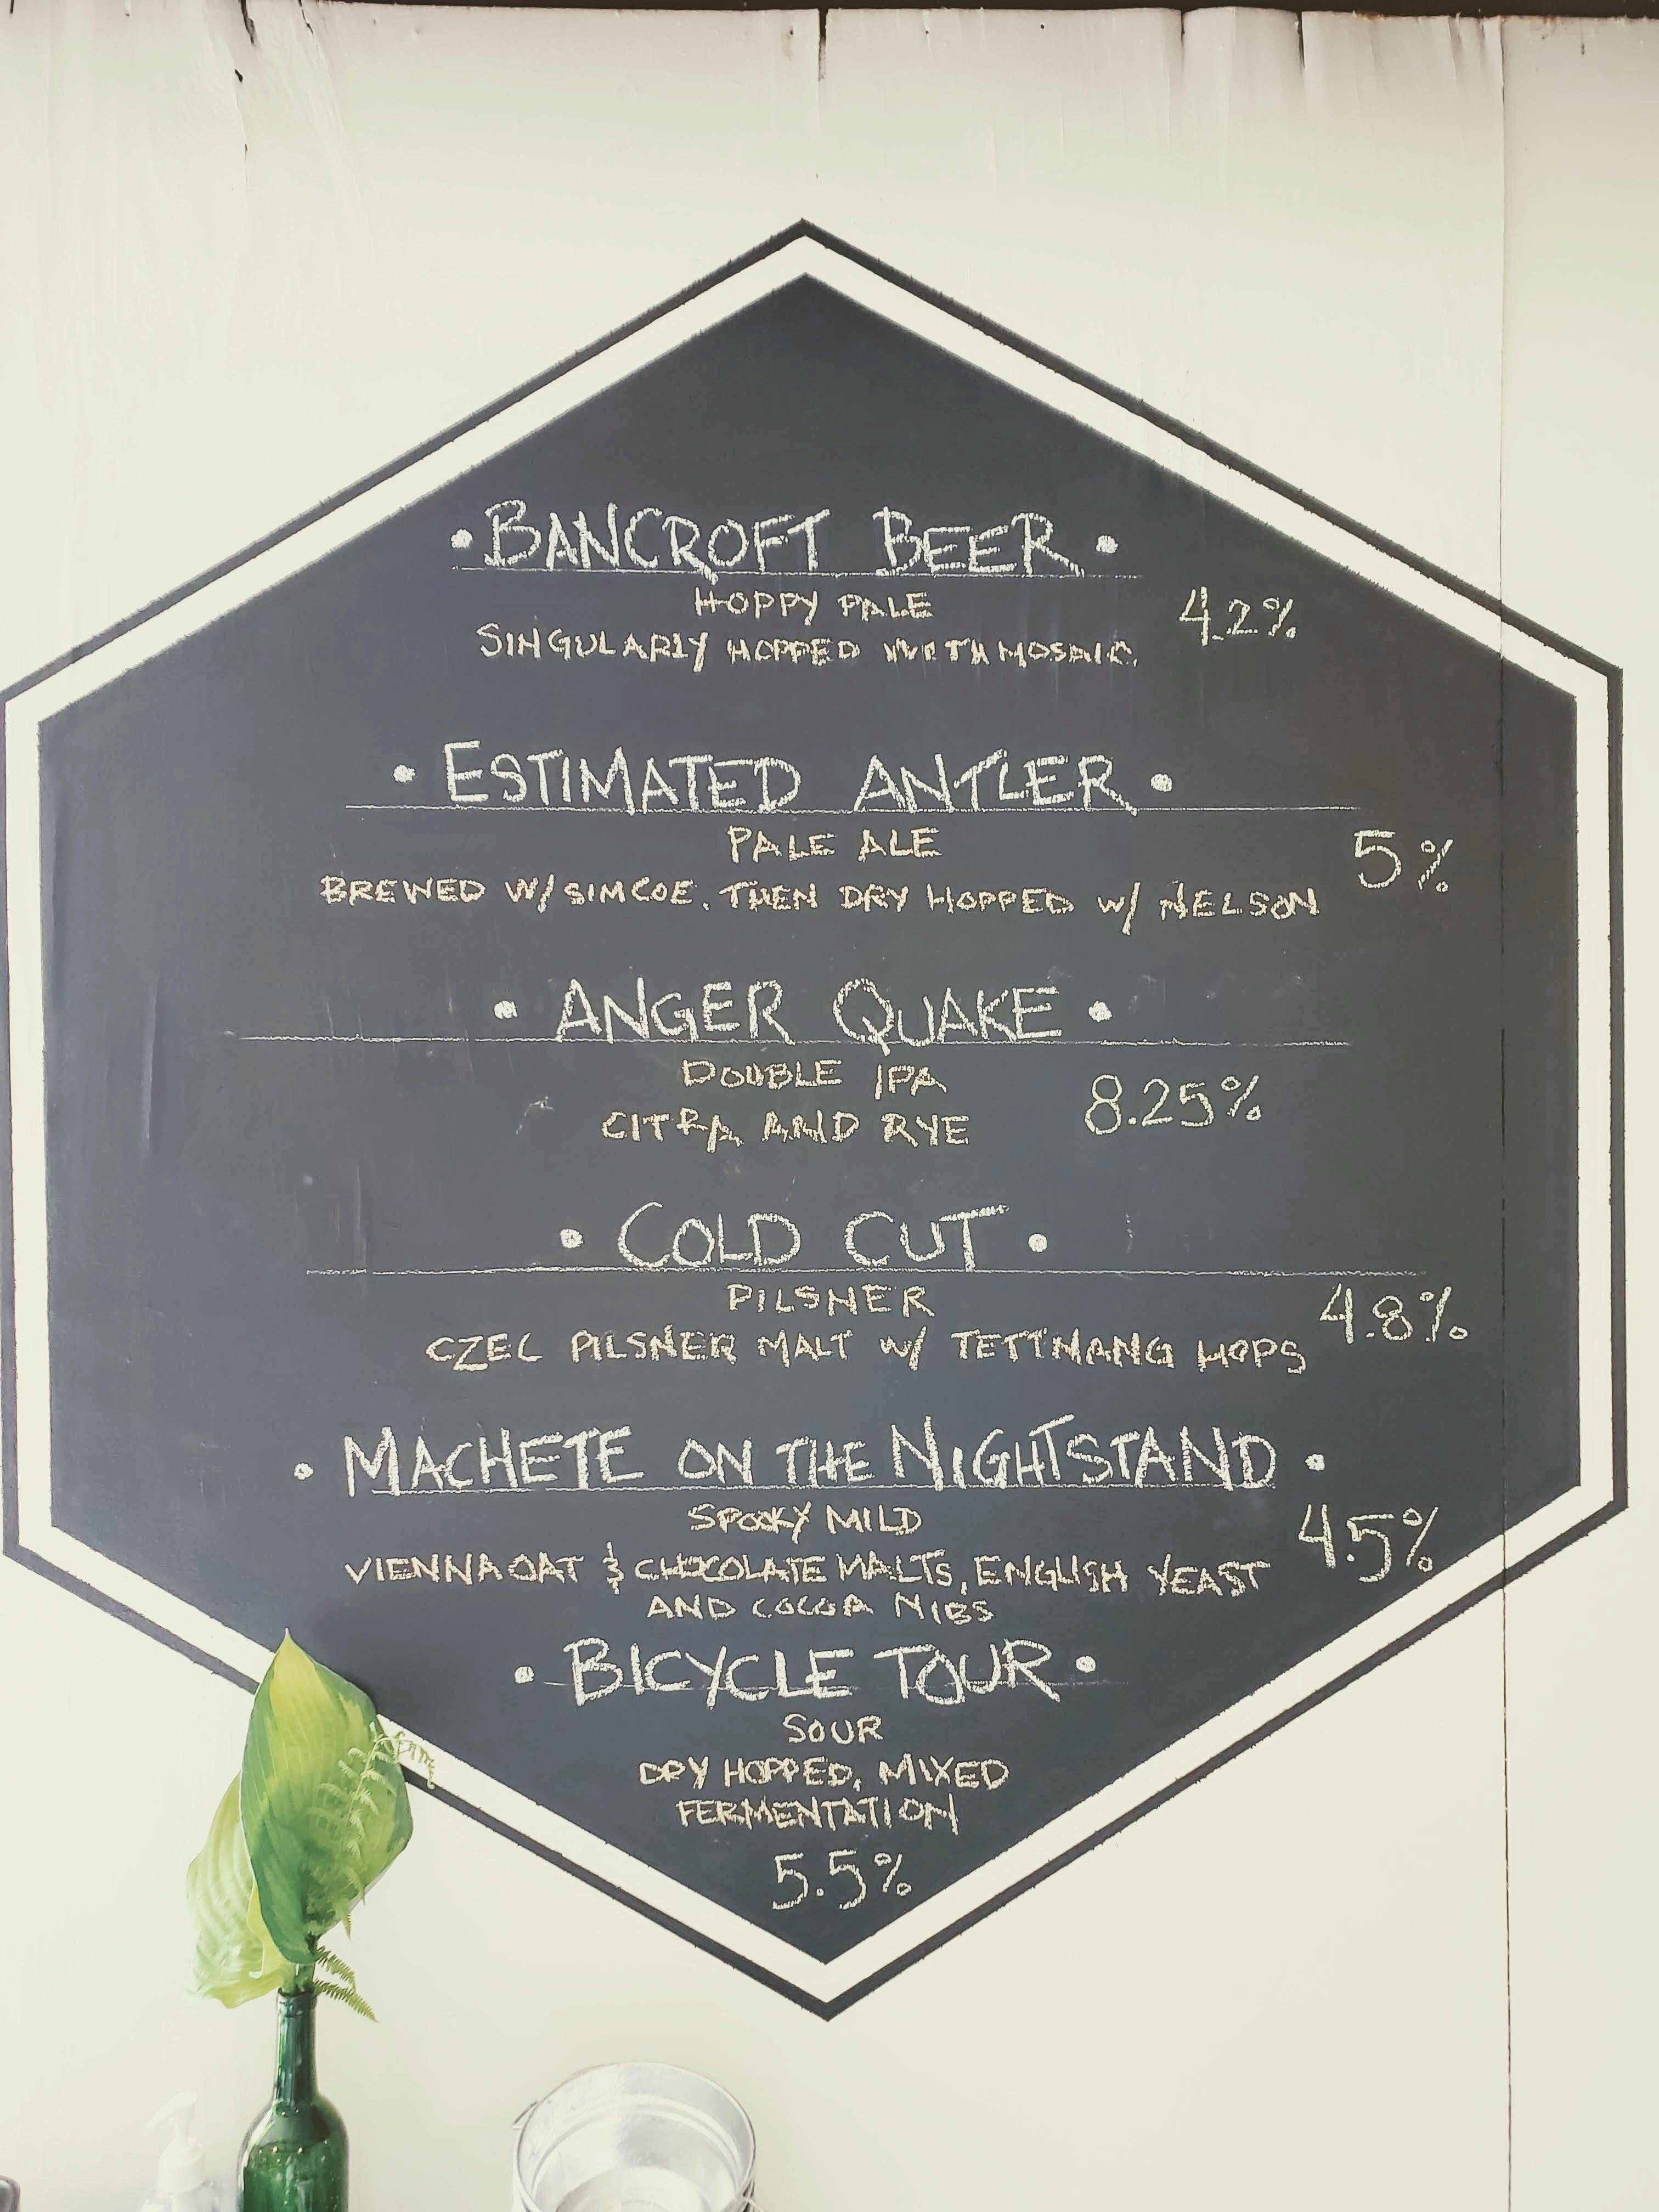 • BANCROFT BEER •
HOPPY PALE
4.2%
SINGULARLY HOPPED WITH MOSAIC.
• ESTIMATED ANTLER •
PALE ALE
5%
BREWED W/ SIMCOE, THEN DRY HOPPED W/ NELSON
• ANGER QUAKE •
DOUBLE IPA
8.25%
CITRA AND RYE
• COLD CUT •
PILSNER
4.8%
CZEC PILSNER MALT W/ TETTNANG HOPS
• MACHETE ON THE NIGHTSTAND •
SPOOKY MILD
4.5%
VIENNA OAT & CHOCOLATE MALTS, ENGLISH YEAST
AND COCOA NIBS
• BICYCLE TOUR •
SOUR
DRY HOPPED, MIXED
FERMENTATION
5.5%